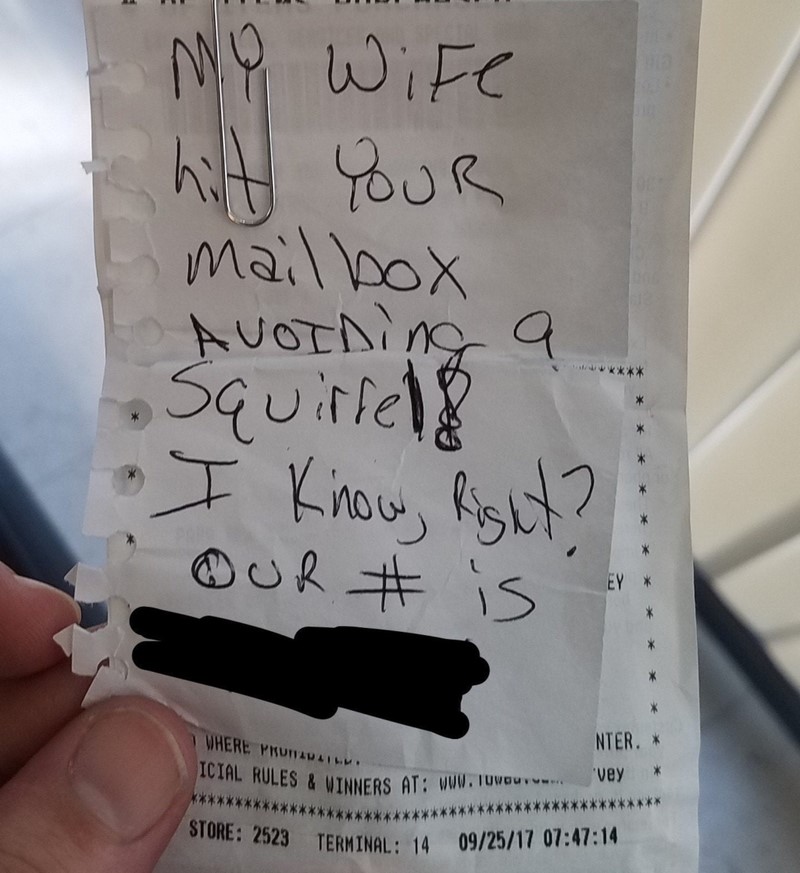 MY WiFe
hit YOUR
mailbox
AVOIDing a
Squirrel!
I Know, Right?
OUR # is
EY *
WHERE PROHIBITED.
NTER. *
ICIAL RULES & WINNERS AT: WWW.
vey *
STORE: 2523 TERMINAL: 14 09/25/17 07:47:14